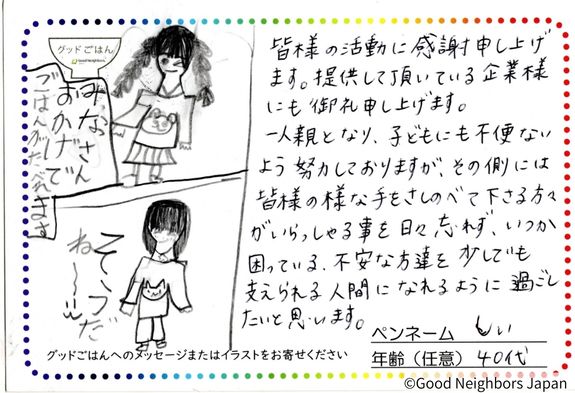 グッドごはん
Good Neighbors
みなさん
おかげで
ごはんがたべれます
そうだ
ね〜
皆様の活動に感謝申し上げ
ます。提供して頂いている企業様
にも御礼申し上げます。
一人親となり、子どもにも不便ない
よう努力しておりますが、その側には
皆様の様な手をさしのべて下さる方々
がいらっしゃる事を日々忘れず、いつか
困っている、不安な方達を少しでも
支えられる人間になれるように過ごし
たいと思います。
ペンネーム しい
年齢（任意） 40代
グッドごはんへのメッセージまたはイラストをお寄せください
©Good Neighbors Japan